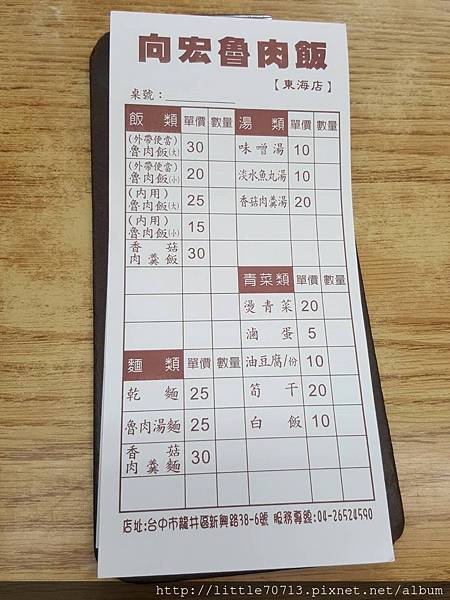 向宏魯肉飯
【東海店】
桌號：
飯類 單價 數量 湯類 單價 數量
(外帶便當) 魯肉飯(大) 30 味噌湯 10
(外帶便當) 魯肉飯(小) 20 淡水魚丸湯 10
(內用) 魯肉飯(大) 25 香菇肉羹湯 20
(內用) 魯肉飯(小) 15
香菇肉羹飯 30
青菜類 單價 數量
燙青菜 20
滷蛋 5
麵類 單價 數量 油豆腐/份 10
乾麵 25 筍干 20
魯肉湯麵 25 白飯 10
香菇肉羹麵 30
店址:台中市龍井區新興路38-6號 服務專線:04-26524590
http://little70713.pixnet.net/album